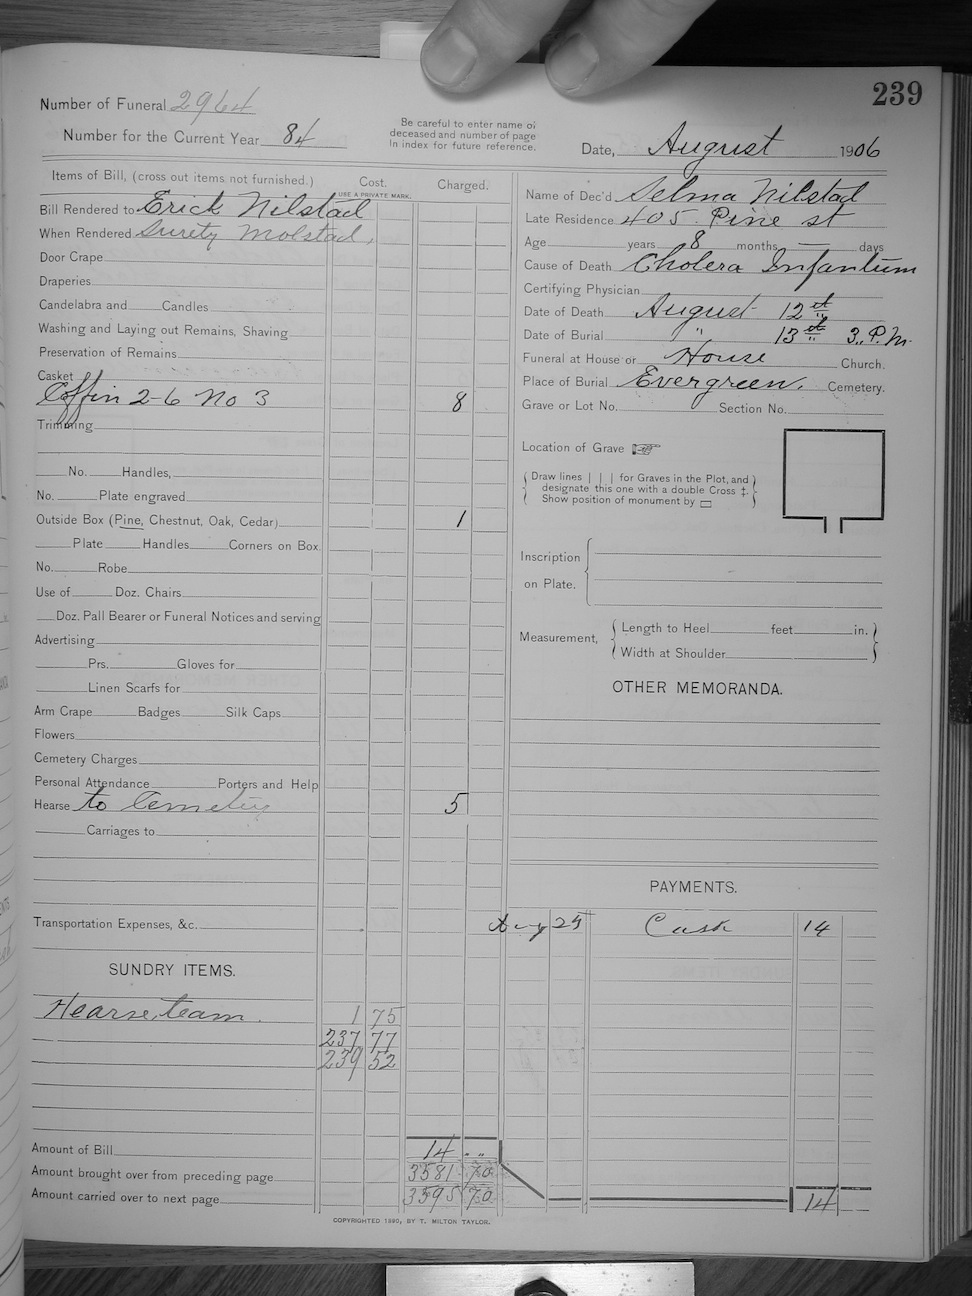 239
Number of Funeral 2964
Number for the Current Year 84
Be careful to enter name of
deceased and number of page
in index for future reference.
Date, August 1906
Items of Bill, (cross out items not furnished.) Cost. Charged.
USE A PRIVATE MARK.
Bill Rendered to Erick Nilstad
When Rendered Surety Molstad,
Door Crape
Draperies
Candelabra and Candles
Washing and Laying out Remains, Shaving
Preservation of Remains
Casket
Coffin 2-6 No 3 8
Trimming
No. Handles,
No. Plate engraved
Outside Box (Pine, Chestnut, Oak, Cedar) 1
Plate Handles Corners on Box
No. Robe
Use of Doz. Chairs
Doz. Pall Bearer or Funeral Notices and serving
Advertising
Prs. Gloves for
Linen Scarfs for
Arm Crape Badges Silk Caps
Flowers
Cemetery Charges
Personal Attendance Porters and Help
Hearse to Cemetery 5
Carriages to
Transportation Expenses, &c.
SUNDRY ITEMS.
Hearse team. 1 75
237 77
239 52
Amount of Bill 14 „
Amount brought over from preceding page 3581 70
Amount carried over to next page 3595 70
Name of Dec'd Selma Nilstad
Late Residence 405 Pine st
Age years 8 months — days
Cause of Death Cholera Infantum
Certifying Physician
Date of Death August 12th
Date of Burial " 13th 3. P.M.
Funeral at House or House Church.
Place of Burial Evergreen. Cemetery.
Grave or Lot No. Section No.
Location of Grave
Draw lines | | | for Graves in the Plot, and
designate this one with a double Cross ‡.
Show position of monument by ▭
Inscription
on Plate.
Measurement, Length to Heel feet in.
Width at Shoulder
OTHER MEMORANDA.
PAYMENTS.
Aug 25 Cash 14
14
COPYRIGHTED 1890, BY T. MILTON TAYLOR.